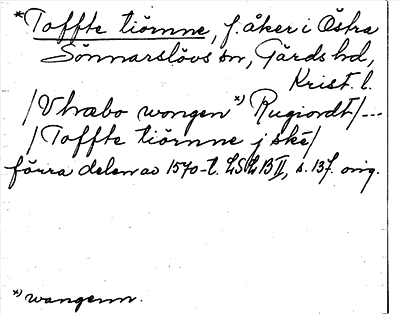 *Toffte tiörnne, f. åker i Östra
Sönnarslövs sn, Gärds hd,
Krist. l.
/Vhræbo wongen *) Rugiordt/---
/Toffte tiörnne j ské/
förra delen av 1570-t. LSLB II, s. 137. orig.
*) wangenn.